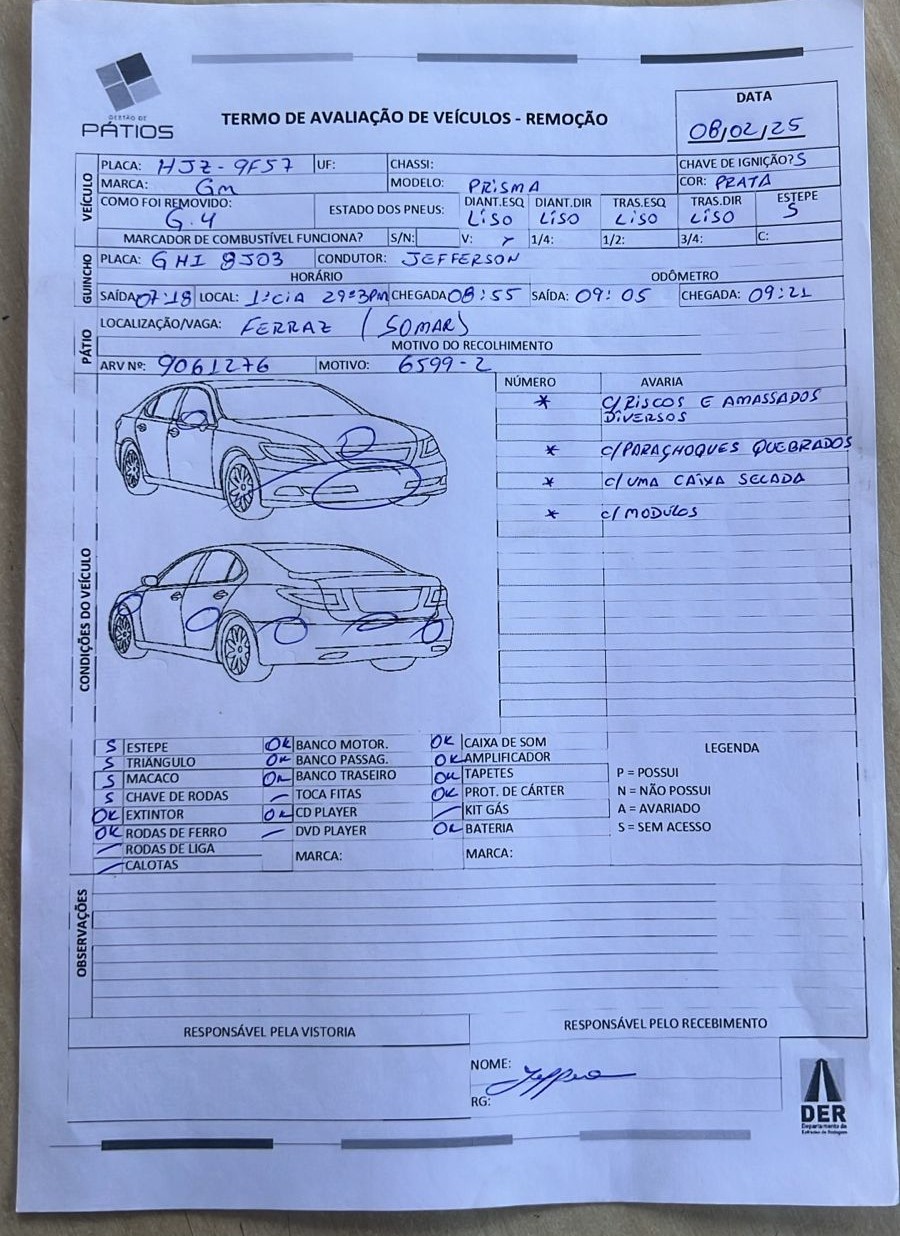 GESTÃO DE
PÁTIOS
TERMO DE AVALIAÇÃO DE VEÍCULOS - REMOÇÃO
DATA
08/02/25
VEÍCULO
PLACA: HJZ-9F57 UF: CHASSI: CHAVE DE IGNIÇÃO? S
MARCA: GM MODELO: PRISMA COR: PRATA
COMO FOI REMOVIDO: G.4 ESTADO DOS PNEUS: DIANT.ESQ LISO DIANT.DIR LISO TRAS.ESQ LISO TRAS.DIR LISO ESTEPE S
MARCADOR DE COMBUSTÍVEL FUNCIONA? S/N: V: 1/4: 1/2: 3/4: C:
GUINCHO
PLACA: GHI 8J03 CONDUTOR: JEFFERSON
HORÁRIO ODÔMETRO
SAÍDA 07:18 LOCAL: 1ªCIA 29º3PM CHEGADA 08:55 SAÍDA: 09:05 CHEGADA: 09:21
PÁTIO
LOCALIZAÇÃO/VAGA: FERRAZ (SOMAR)
MOTIVO DO RECOLHIMENTO
ARV Nº: 9061276 MOTIVO: 6599-2
CONDIÇÕES DO VEÍCULO
NÚMERO AVARIA
* C/RISCOS E AMASSADOS
DIVERSOS
* C/PARAÇHOQUES QUEBRADOS
* C/UMA CAIXA SELADA
* C/MODULOS
S ESTEPE OK BANCO MOTOR. OK CAIXA DE SOM
S TRIÂNGULO OK BANCO PASSAG. OK AMPLIFICADOR
S MACACO OK BANCO TRASEIRO OK TAPETES
S CHAVE DE RODAS — TOCA FITAS OK PROT. DE CÁRTER
OK EXTINTOR OK CD PLAYER — KIT GÁS
OK RODAS DE FERRO — DVD PLAYER OK BATERIA
— RODAS DE LIGA MARCA: MARCA:
— CALOTAS
LEGENDA
P = POSSUI
N = NÃO POSSUI
A = AVARIADO
S = SEM ACESSO
OBSERVAÇÕES
RESPONSÁVEL PELA VISTORIA RESPONSÁVEL PELO RECEBIMENTO
NOME:
RG:
DER
Departamento de
Estradas de Rodagem